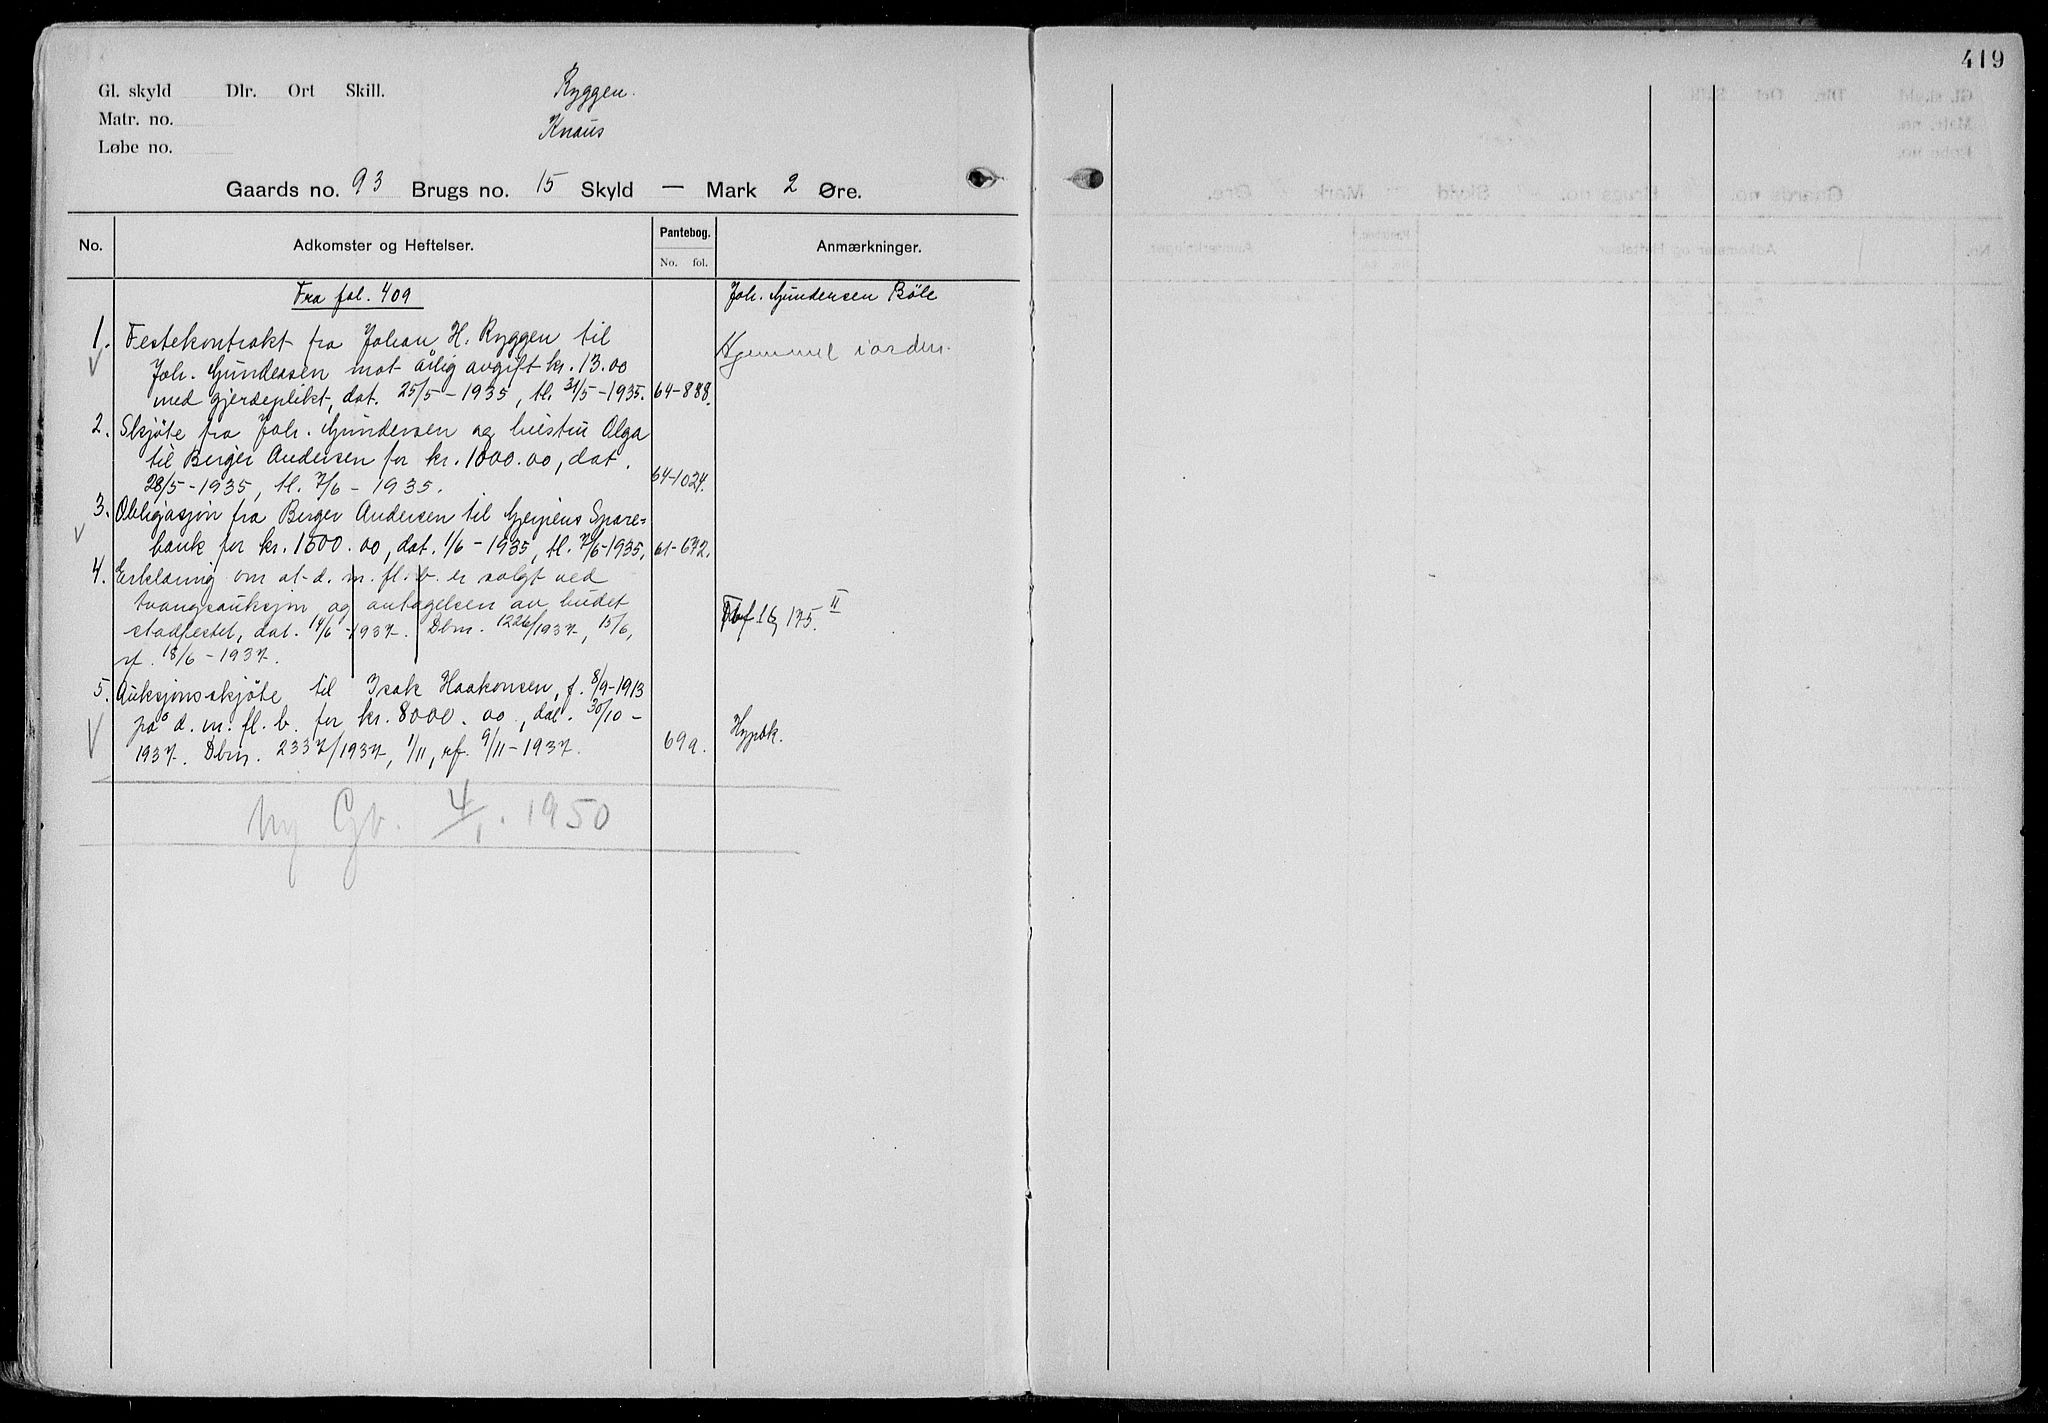 419
Gl. skyld Dlr. Ort Skill.
Matr. no.
Løbe no.
Ryggen.
Knaus
Gaards no. 93 Brugs no. 15 Skyld — Mark 2 Øre.
No. Adkomster og Heftelser. Pantebog. No. fol. Anmærkninger.
Fra fol. 409
Joh. Gundersen Böle
1. Festekontrakt fra Johan H. Ryggen til
Joh. Gundersen mot årlig avgift kr. 13.00
med gjerdeplikt, dat. 25/5 - 1935, tl. 31/5 - 1935. 64-888.
Hjemmel i orden.
2. Skjöte fra Joh. Gundersen og hustru Olga
til Berger Andersen for kr. 1000.00, dat.
28/5 - 1935, tl. 7/6 - 1935. 64-1024.
3. Obligasjon fra Berger Andersen til Gjerpens Spare=
bank for kr. 1500.00, dat. 1/6 - 1935, tl. 7/6 - 1935. 61-672.
4. Erklæring om at d. m. fl. b. er solgt ved
tvangsauksjon, og antagelsen av budet
stadfestet, dat. 14/6 - 1937. Dbm. 1226/1937, 15/6,
rf. 18/6 - 1937.
175. II
5. Auksjonsskjöte til Isak Haakonsen, f. 8/9 - 1913
på d. m. fl. b. for kr. 8000.00, dat. 30/10 -
1937. Dbm. 2337/1937, 1/11, rf. 9/11 - 1937. 69a.
Ny Gb. 4/1. 1950